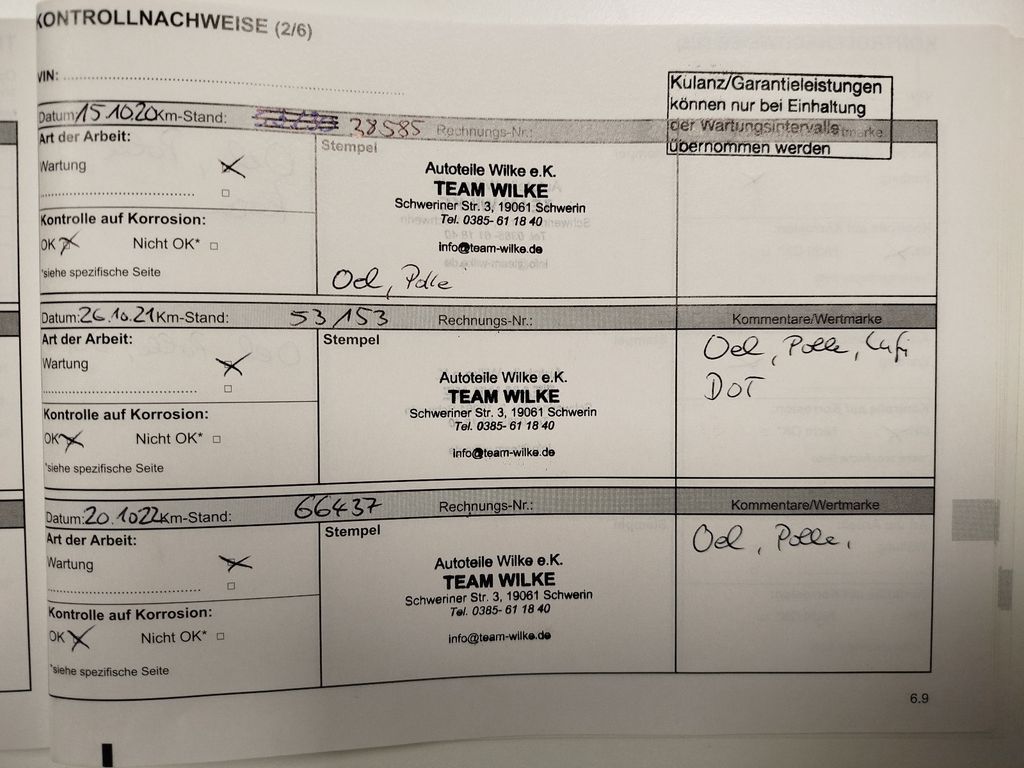 KONTROLLNACHWEISE (2/6)
VIN:
Kulanz/Garantieleistungen
können nur bei Einhaltung
der Wartungsintervalle
übernommen werden
Datum: 15.1020 Km-Stand: 38585 Rechnungs-Nr.:
Art der Arbeit:
Wartung
Kontrolle auf Korrosion:
OK Nicht OK*
*siehe spezifische Seite
Stempel
Autoteile Wilke e.K.
TEAM WILKE
Schweriner Str. 3, 19061 Schwerin
Tel. 0385- 61 18 40
info@team-wilke.de
Oel, Polle
Datum: 26.10.21 Km-Stand: 53153 Rechnungs-Nr.: Kommentare/Wertmarke
Art der Arbeit:
Wartung
Kontrolle auf Korrosion:
OK Nicht OK*
*siehe spezifische Seite
Stempel
Autoteile Wilke e.K.
TEAM WILKE
Schweriner Str. 3, 19061 Schwerin
Tel. 0385- 61 18 40
info@team-wilke.de
Oel, Polle, Lufi
DOT
Datum: 20.1022 Km-Stand: 66437 Rechnungs-Nr.: Kommentare/Wertmarke
Art der Arbeit:
Wartung
Kontrolle auf Korrosion:
OK Nicht OK*
*siehe spezifische Seite
Stempel
Autoteile Wilke e.K.
TEAM WILKE
Schweriner Str. 3, 19061 Schwerin
Tel. 0385- 61 18 40
info@team-wilke.de
Oel, Polle,
6.9